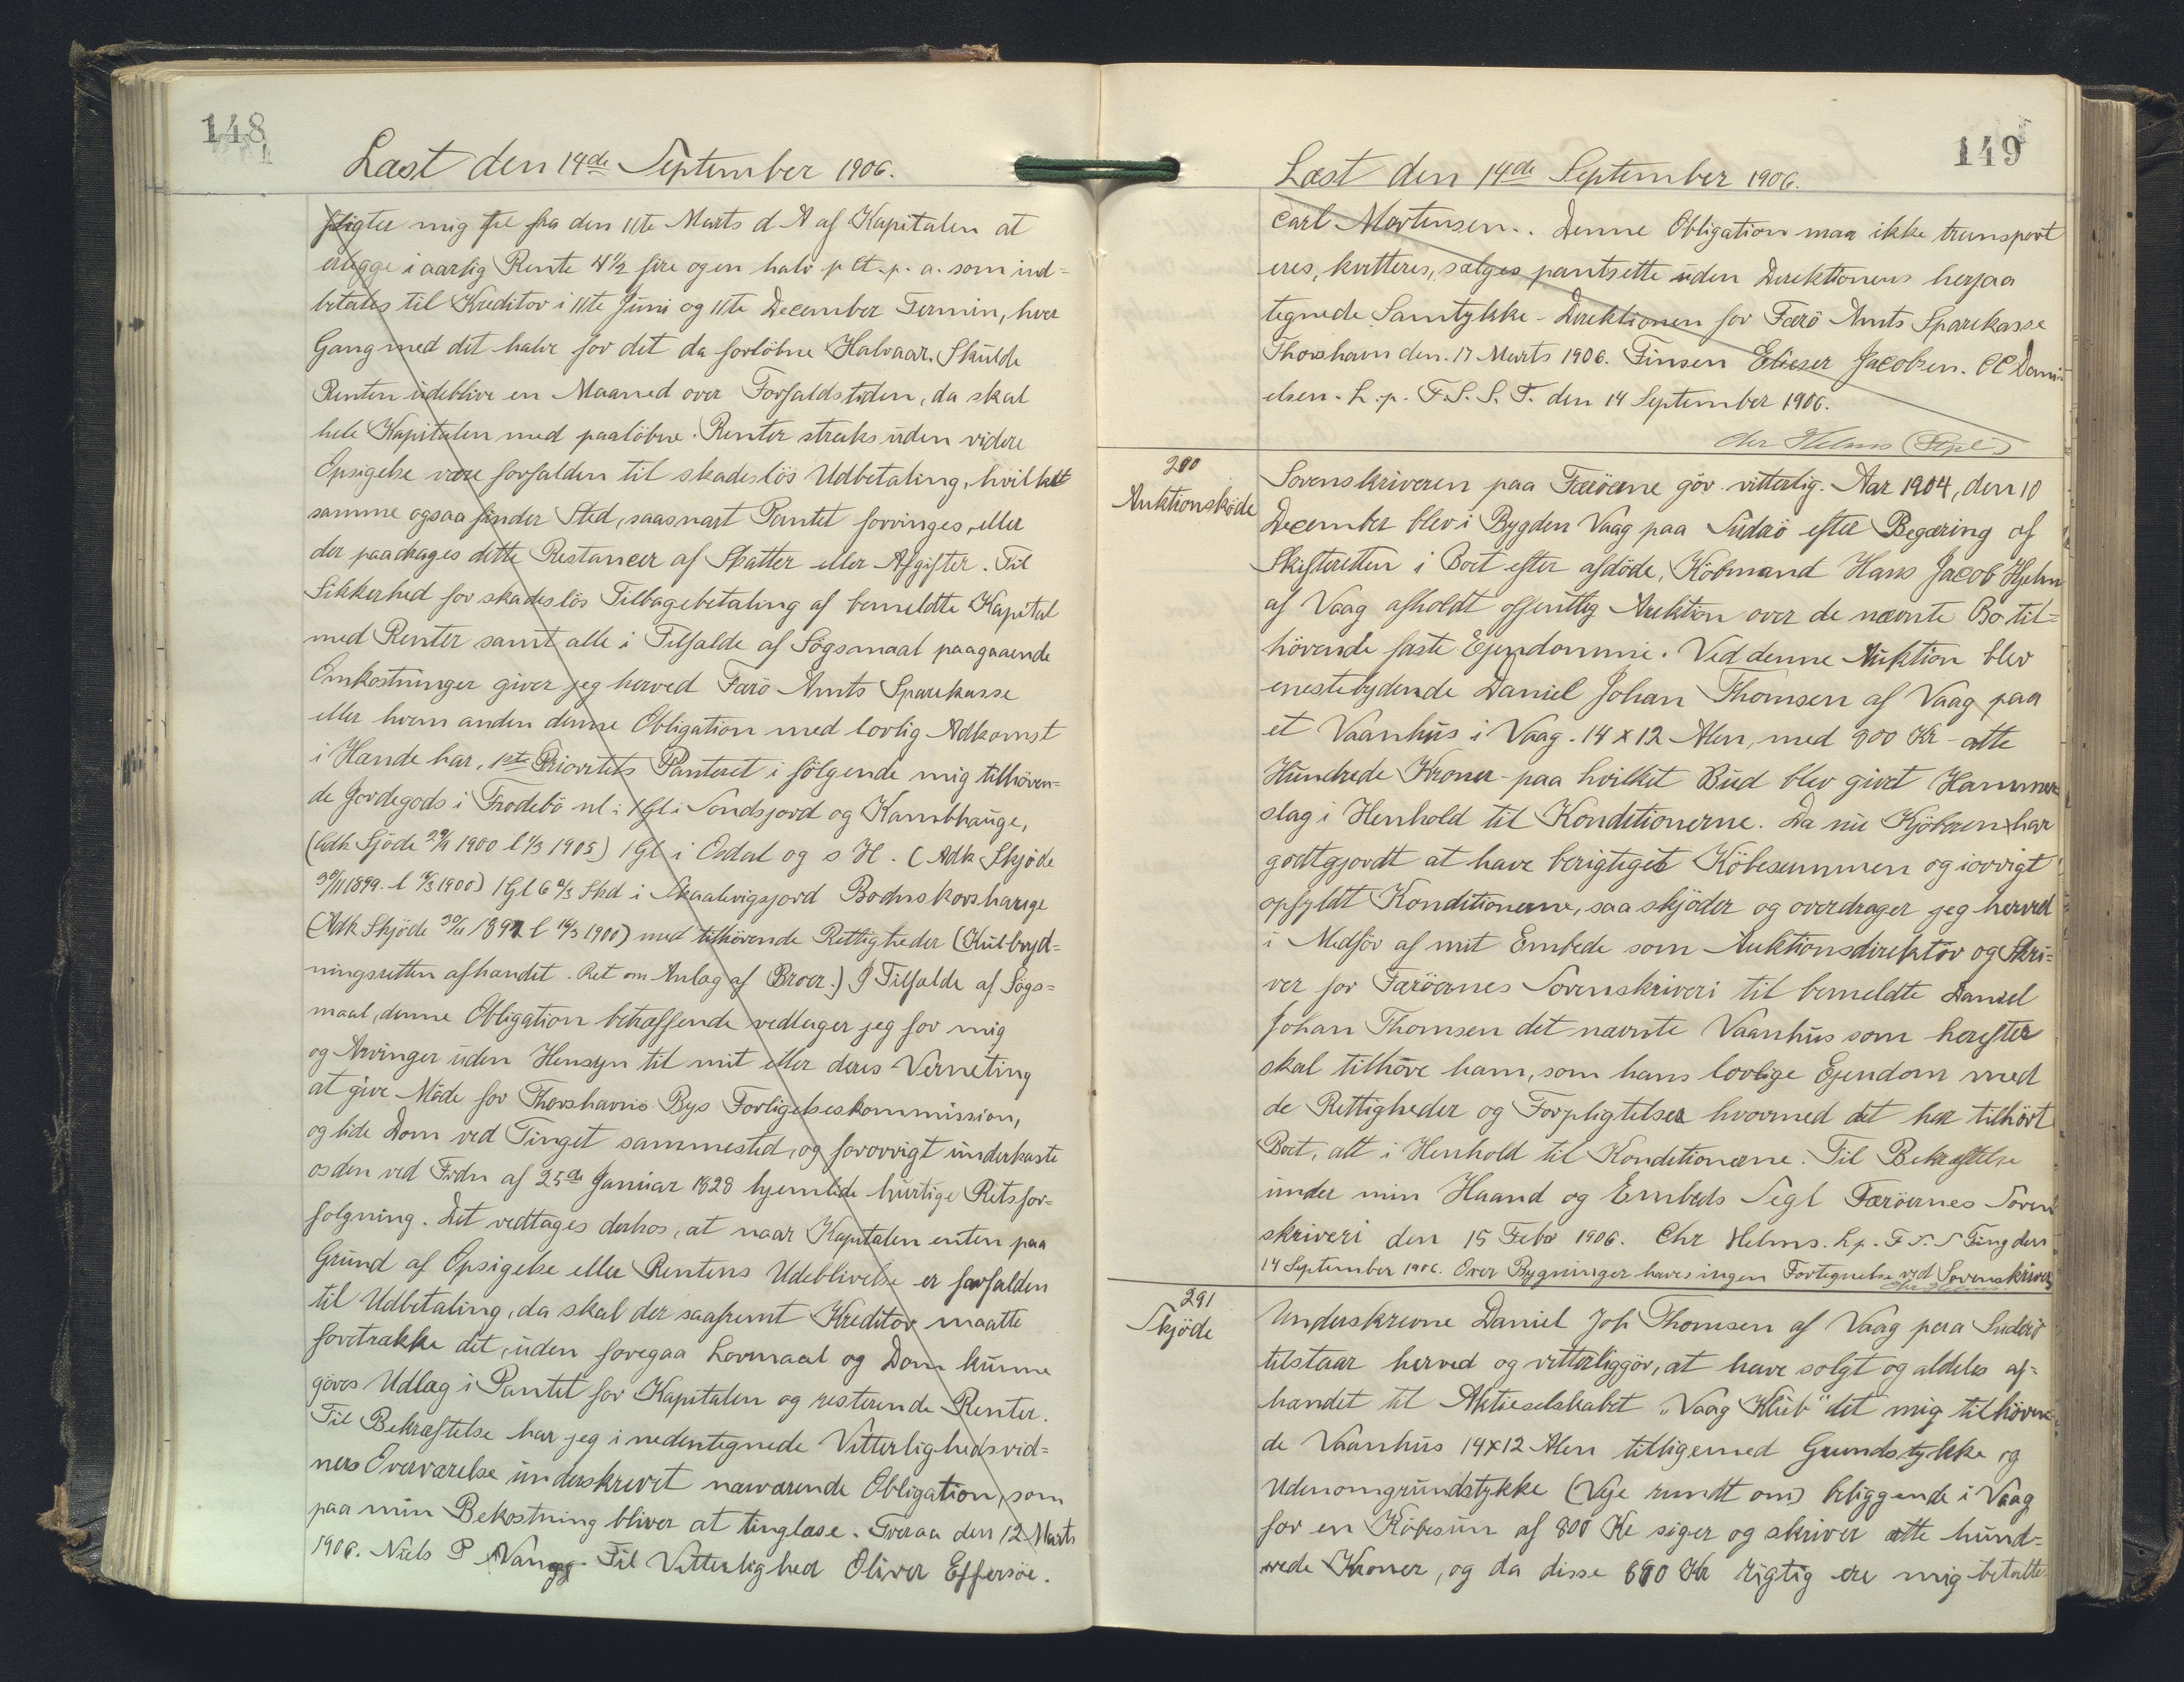 148
Læst den 14de September 1906.
pligter mig til fra den 11te Marts d A af Kapitalen at
erlægge i aarlig Rente 4½ fire og en halv p Ct. p. a. som ind=
betales til Kreditor i 11te Juni og 11te December Termin, hver
Gang med det halve for det da forløbne Halvaar. Skulde
Renten udeblive en Maaned over Forfaldstiden, da skal
hele Kapitalen med paaløbne Renter straks uden videre
Opsigelse være forfalden til skadesløs Udbetaling, hvilket
samme ogsaa finder Sted, saasnart Pantet forringes, eller
der paadrages dette Restancer af Skatter eller Afgifter. Til
Sikkerhed for skadesløs Tilbagebetaling af bemeldte Kapital
med Renter samt alle i Tilfælde af Søgsmaal paagaaende
Omkostninger giver jeg herved Færø Amts Sparekasse
eller hvem anden denne Obligation med lovlig Adkomst
i Hænde har, 1ste Prioritets Panteret i følgende mig tilhøren=
de Jordegods i Frodebø nl: 1 Gl i Sondsjord og Kambhauge,
(Adk Sjøde 29/9 1900 l 14/3 1905) 1 Gl i Oadal og s H. (Adk Skjøde
30/11 1899. l 14/3 1900) 1 Gl 6 2/3 Skd i Skaalevigsjord Bodnskorshauge
(Adk Skjøde 30/11 1897 l 14/3 1900) med tilhørende Rettigheder (Kulbryd=
ningsretten afhændet. Ret om Anlæg af Broer.) I Tilfælde af Søgs=
maal, denne Obligation betræffende vedtager jeg for mig
og Arvinger uden Hensyn til mit eller deres Verneting
at give Møde for Thorshavns Bys Forligelseskommission,
og lide Dom ved Tinget sammested, og forøvrigt underkaste
os den ved Frdn af 25de Januar 1828 hjemlede hurtige Retsfor=
følgning. Det vedtages derhos, at naar Kapitalen enten paa
Grund af Opsigelse eller Rentens Udeblivelse er forfalden
til Udbetaling, da skal der saafremt Kreditor maatte
foretrække det, uden foregaa Lovmaal og Dom kunne
gøres Udlæg i Pantet for Kapitalen og resterende Renter.
Til Bekræftelse har jeg i nedentegnede Vitterlighedsvid=
ners Overværelse underskrevet nærværende Obligation, som
paa min Bekostning bliver at tinglæse. Tveraa den 12 Marts
1906. Niels P Vang Til Vitterlighed Oliver Effersøe.
149
Læst den 14de September 1906.
Carl Mortensen.. Denne Obligation maa ikke transport
eres, kvitteres, sælges pantsette uden Direktionens herpaa
tegnede Samtykke - Direktionen for Færø Amts Sparekasse
Thorshavn den. 17 Marts 1906. Finsen Elieser Jacobsen. O C Dani=
elsen. L. p. F. S. S. T. den 14 September 1906.
Chr Helms (Kpl)
290
Auktionsskøde
Sorenskriveren paa Færøerne gør vitterlig. Aar 1904, den 10
December blev i Bygden Vaag paa Suderø efter Begæring af
Skifteretten i Boet efter afdøde, Købmand Hans Jacob Hjelm
af Vaag afholdt offentlig Auktion over de nævnte Bo til=
hørende faste Ejendomme. Ved denne Auktion blev
enestebydende Daniel Johan Thomsen af Vaag paa
et Vaanhus i Vaag. 14 x 12 Alen, med 800 Kr - otte
Hundrede Kroner - paa hvilket Bud blev givet Hammer
slag i Henhold til Konditionerne. Da nu Kjøberen har
godtgjordt at have berigtiget Købesummen og iøvrigt
opfyldt Konditionerne, saa skjøder og overdrager jeg herved
i Medfør af mit Embede som Auktionsdirektør og Skri=
ver for Færøernes Sorenskriveri til bemeldte Daniel
Johan Thomsen det nævnte Vaanhus som herefter
skal tilhøre ham, som hans lovlige Ejendom med
de Rettigheder og Forpligtelser hvormed det har tilhørt
Boet, alt i Henhold til Konditionerne. Til Bekræftelse
under min Haand og Embeds Segl Færøernes Soren
skriveri den 15 Febr 1906. Chr Helms. L p. F S. S Ting den
14 September 1906. Over Bygninger haves ingen Fortegnelse ved Sorenskriveri
Chr Helms.
291
Skjøde
Underskrevne Daniel Joh Thomsen af Vaag paa Suderø
tilstaar herved og vitterliggør, at have solgt og aldeles af=
hændet til Aktieselskabet "Vaag Klub" det mig tilhøren=
de Vaanhus 14x12 Alen tilligemed Grundstykke og
Udenomgrundstykke (Veje rundt om) beliggende i Vaag
for en Købesum af 800 Kr siger og skriver otte hund=
rede Kroner, og da disse 800 Kr rigtig ere mig betalte